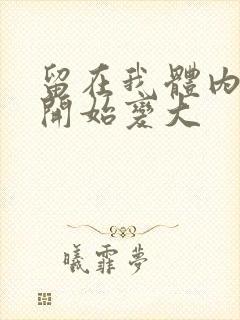 留在我體內
開始變大
曦霏夢